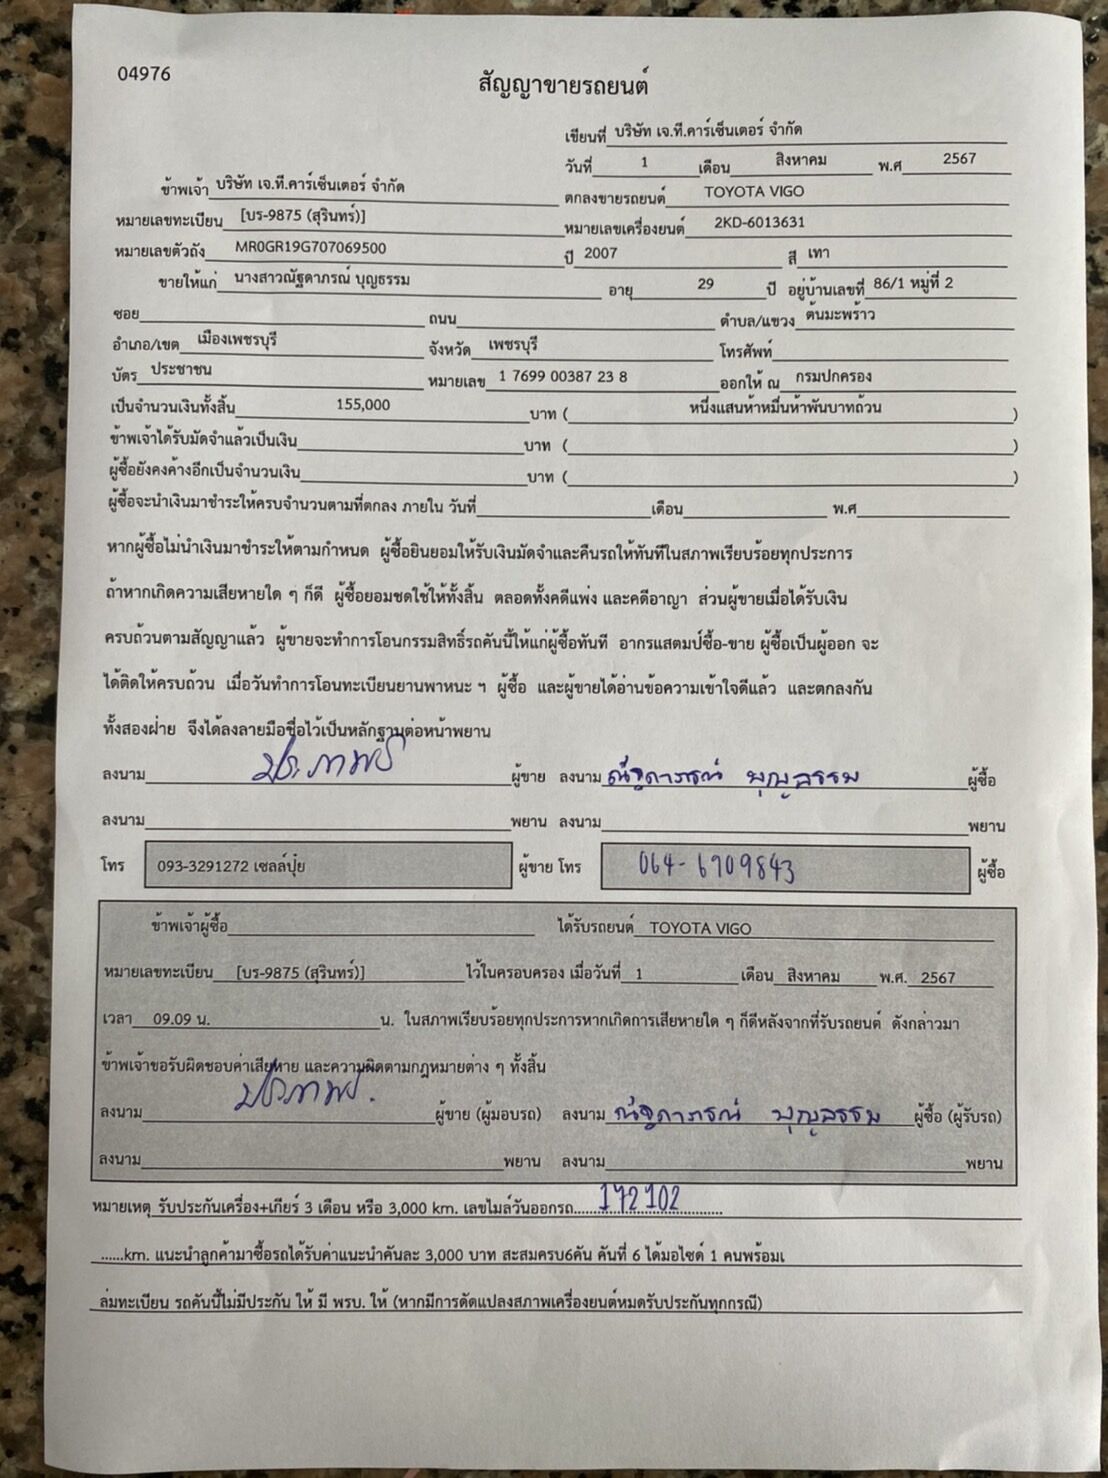 04976
สัญญาขายรถยนต์
เขียนที่ บริษัท เจ.ที.คาร์เซ็นเตอร์ จำกัด
วันที่ 1 เดือน สิงหาคม พ.ศ 2567
ข้าพเจ้า บริษัท เจ.ที.คาร์เซ็นเตอร์ จำกัด ตกลงขายรถยนต์ TOYOTA VIGO
หมายเลขทะเบียน [บร-9875 (สุรินทร์)] หมายเลขเครื่องยนต์ 2KD-6013631
หมายเลขตัวถัง MR0GR19G707069500 ปี 2007 สี เทา
ขายให้แก่ นางสาวณัฐดาภรณ์ บุญธรรม อายุ 29 ปี อยู่บ้านเลขที่ 86/1 หมู่ที่ 2
ซอย ถนน ตำบล/แขวง ต้นมะพร้าว
อำเภอ/เขต เมืองเพชรบุรี จังหวัด เพชรบุรี โทรศัพท์
บัตร ประชาชน หมายเลข 1 7699 00387 23 8 ออกให้ ณ กรมปกครอง
เป็นจำนวนเงินทั้งสิ้น 155,000 บาท ( หนึ่งแสนห้าหมื่นห้าพันบาทถ้วน )
ข้าพเจ้าได้รับมัดจำแล้วเป็นเงิน บาท ( )
ผู้ซื้อยังคงค้างอีกเป็นจำนวนเงิน บาท ( )
ผู้ซื้อจะนำเงินมาชำระให้ครบจำนวนตามที่ตกลง ภายใน วันที่ เดือน พ.ศ
หากผู้ซื้อไม่นำเงินมาชำระให้ตามกำหนด ผู้ซื้อยินยอมให้รับเงินมัดจำและคืนรถให้ทันทีในสภาพเรียบร้อยทุกประการ
ถ้าหากเกิดความเสียหายใด ๆ ก็ดี ผู้ซื้อยอมชดใช้ให้ทั้งสิ้น ตลอดทั้งคดีแพ่ง และคดีอาญา ส่วนผู้ขายเมื่อได้รับเงิน
ครบถ้วนตามสัญญาแล้ว ผู้ขายจะทำการโอนกรรมสิทธิ์รถคันนี้ให้แก่ผู้ซื้อทันที อากรแสตมป์ซื้อ-ขาย ผู้ซื้อเป็นผู้ออก จะ
ได้ติดให้ครบถ้วน เมื่อวันทำการโอนทะเบียนยานพาหนะ ฯ ผู้ซื้อ และผู้ขายได้อ่านข้อความเข้าใจดีแล้ว และตกลงกัน
ทั้งสองฝ่าย จึงได้ลงลายมือชื่อไว้เป็นหลักฐานต่อหน้าพยาน
ลงนาม ผู้ขาย ลงนาม ณัฐดาภรณ์ บุญธรรม ผู้ซื้อ
ลงนาม พยาน ลงนาม พยาน
โทร 093-3291272 เซลล์ปุ๋ย ผู้ขาย โทร 064-6909843 ผู้ซื้อ
ข้าพเจ้าผู้ซื้อ ได้รับรถยนต์ TOYOTA VIGO
หมายเลขทะเบียน [บร-9875 (สุรินทร์)] ไว้ในครอบครอง เมื่อวันที่ 1 เดือน สิงหาคม พ.ศ. 2567
เวลา 09.09 น. น. ในสภาพเรียบร้อยทุกประการหากเกิดการเสียหายใด ๆ ก็ดีหลังจากที่รับรถยนต์ ดังกล่าวมา
ข้าพเจ้าขอรับผิดชอบค่าเสียหาย และความผิดตามกฎหมายต่าง ๆ ทั้งสิ้น
ลงนาม ผู้ขาย (ผู้มอบรถ) ลงนาม ณัฐดาภรณ์ บุญธรรม ผู้ซื้อ (ผู้รับรถ)
ลงนาม พยาน ลงนาม พยาน
หมายเหตุ รับประกันเครื่อง+เกียร์ 3 เดือน หรือ 3,000 km. เลขไมล์วันออกรถ 172102
......km. แนะนำลูกค้ามาซื้อรถได้รับค่าแนะนำคันละ 3,000 บาท สะสมครบ6คัน คันที่ 6 ได้มอไซด์ 1 คนพร้อมเ
ล่มทะเบียน รถคันนี้ไม่มีประกัน ให้ มี พรบ. ให้ (หากมีการดัดแปลงสภาพเครื่องยนต์หมดรับประกันทุกกรณี)